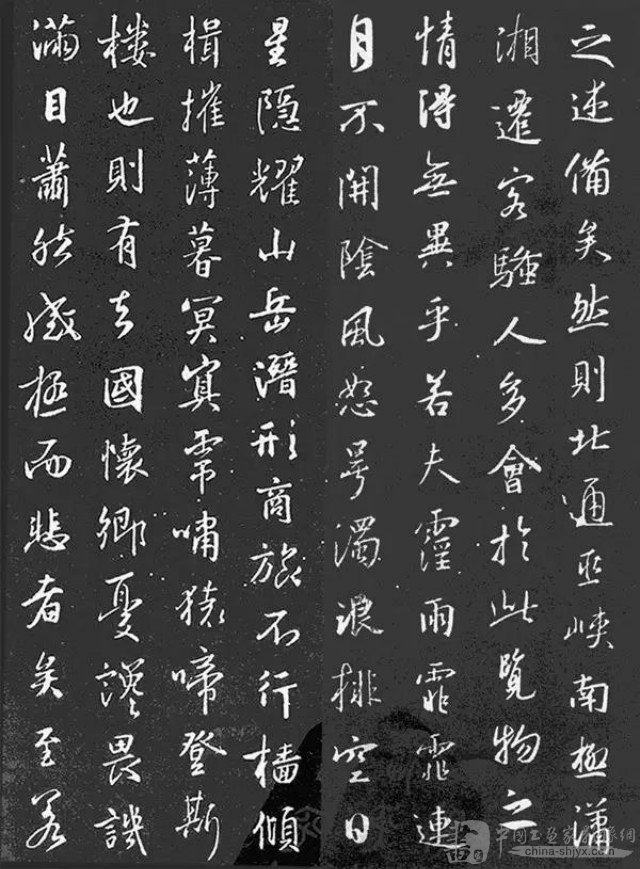 之述備矣然則北通巫峽南極瀟
湘遷客騷人多會於此覽物之
情得無異乎若夫霪雨霏霏連
月不開陰風怒号濁浪排空日
星隱耀山岳潛形商旅不行檣傾
楫摧薄暮冥冥虎嘯猿啼登斯
楼也則有去國懷鄉憂讒畏譏
滿目蕭然感極而悲者矣至若
china-shjyx.com